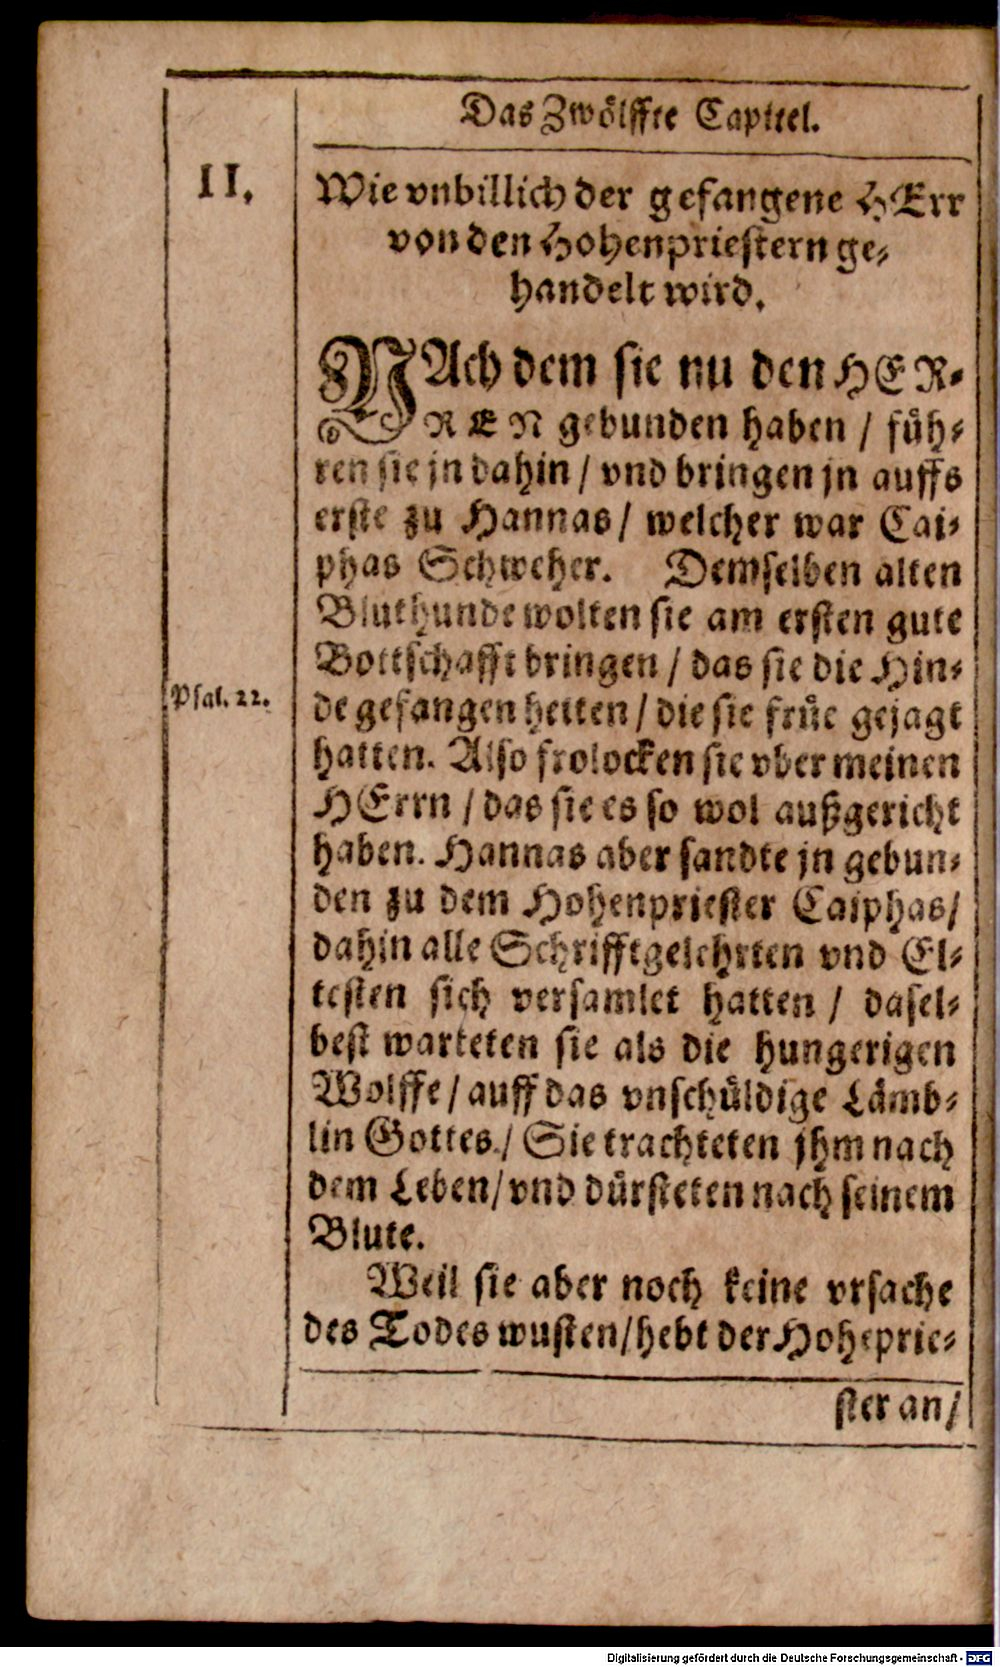 Das Zwölffte Capittel.
II.
Wie vnbillich der gefangene HErr
von den Hohenpriestern ge⸗
handelt wird.
NAch dem sie nu den HER⸗
REN gebunden haben / füh⸗
ren sie jn dahin / vnd bringen jn auffs
erste zu Hannas / welcher war Cai⸗
phas Schweher. Demselben alten
Bluthunde wolten sie am ersten gute
Bottschafft bringen / das sie die Hin⸗
Psal. 22.
de gefangen hetten / die sie früe gejagt
hatten. Also frolocken sie vber meinen
HErrn / das sie es so wol außgericht
haben. Hannas aber sandte jn gebun⸗
den zu dem Hohenpriester Caiphas /
dahin alle Schrifftgelehrten vnd El⸗
testen sich versamlet hatten / dasel⸗
best warteten sie als die hungerigen
Wolffe / auff das vnschüldige Lämb⸗
lin Gottes / Sie trachteten jhm nach
dem Leben / vnd dürsteten nach seinem
Blute.
Weil sie aber noch keine vrsache
des Todes wusten / hebt der Hoheprie⸗
ster an /
Digitalisierung gefördert durch die Deutsche Forschungsgemeinschaft - DFG